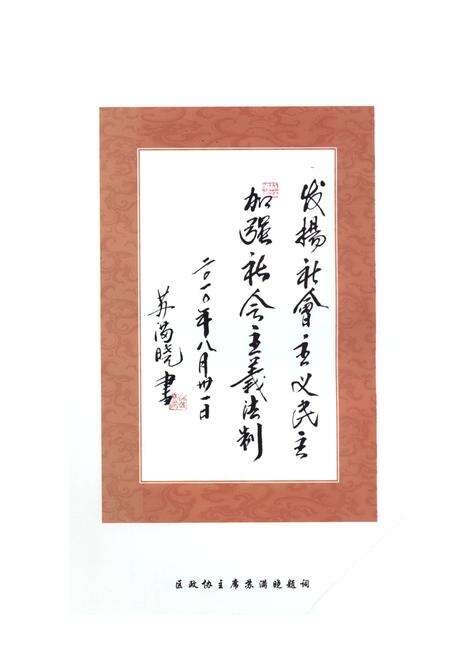 发揚社會主义民主
加强社会主義法制
二〇一〇年八月卅一日
苏满晓書
区政协主席苏满晓题词